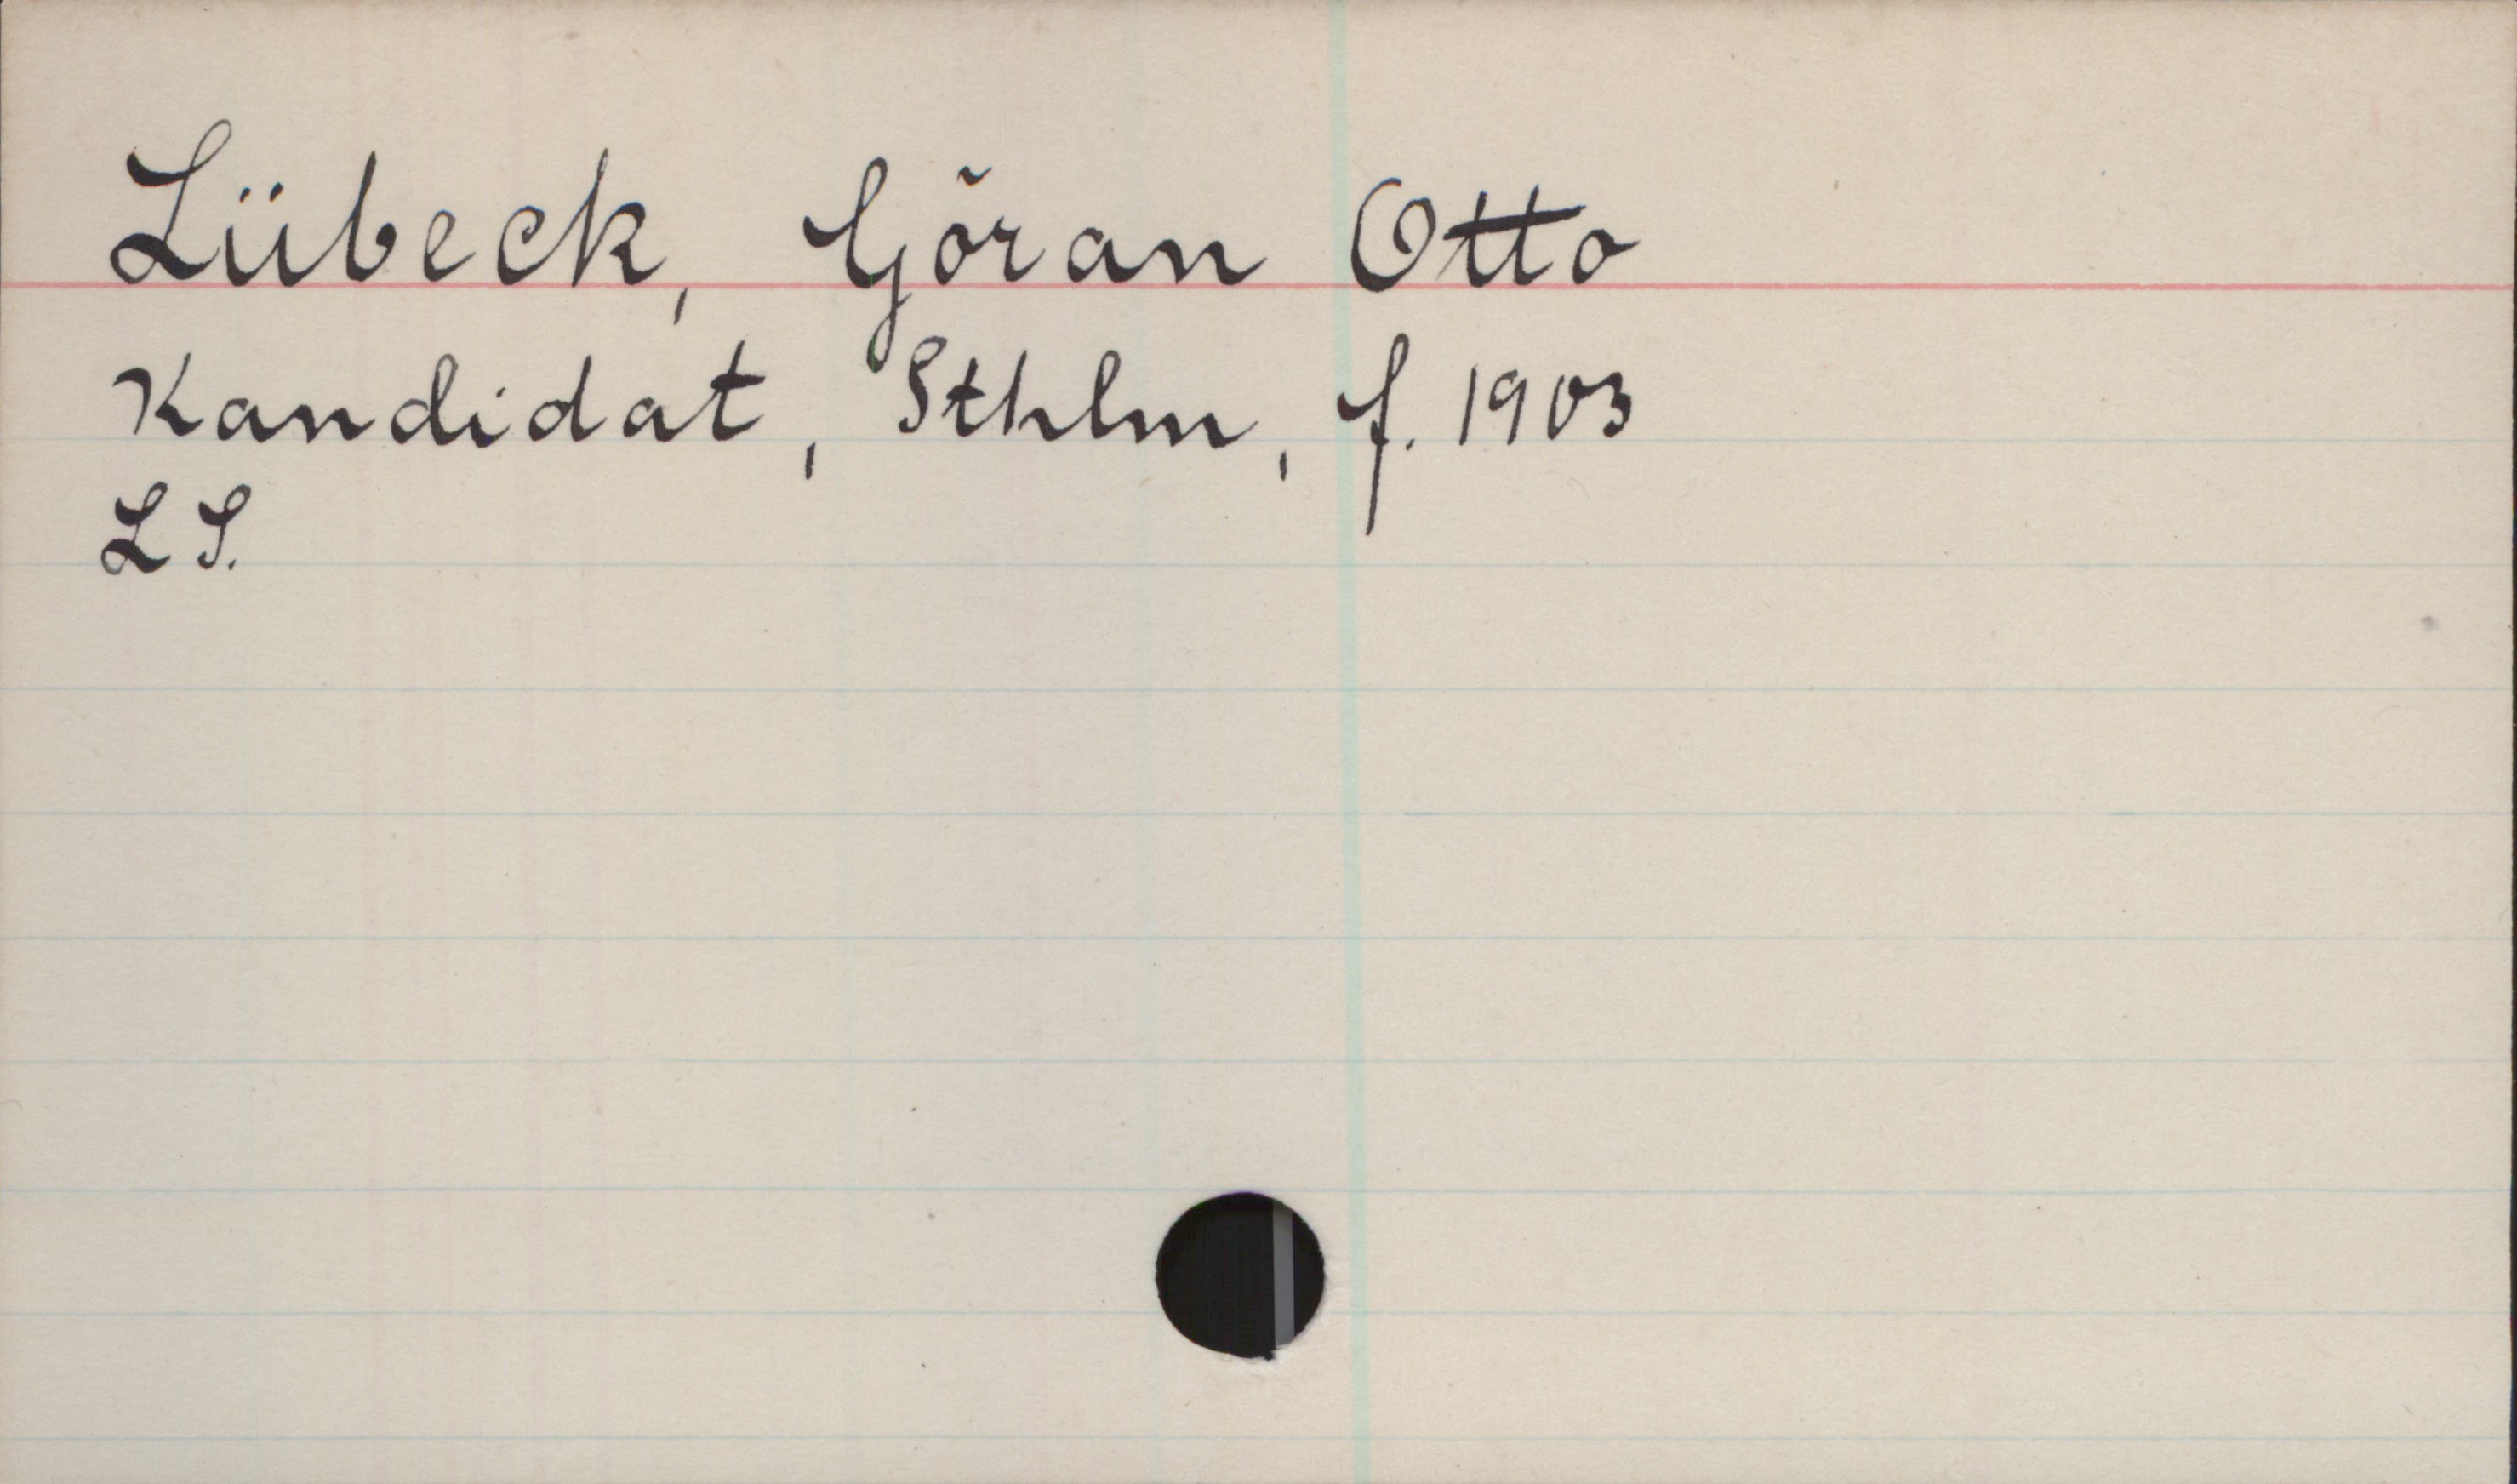 Lübeck, Göran Otto
Kandidat, Sthlm, f. 1903
L S.